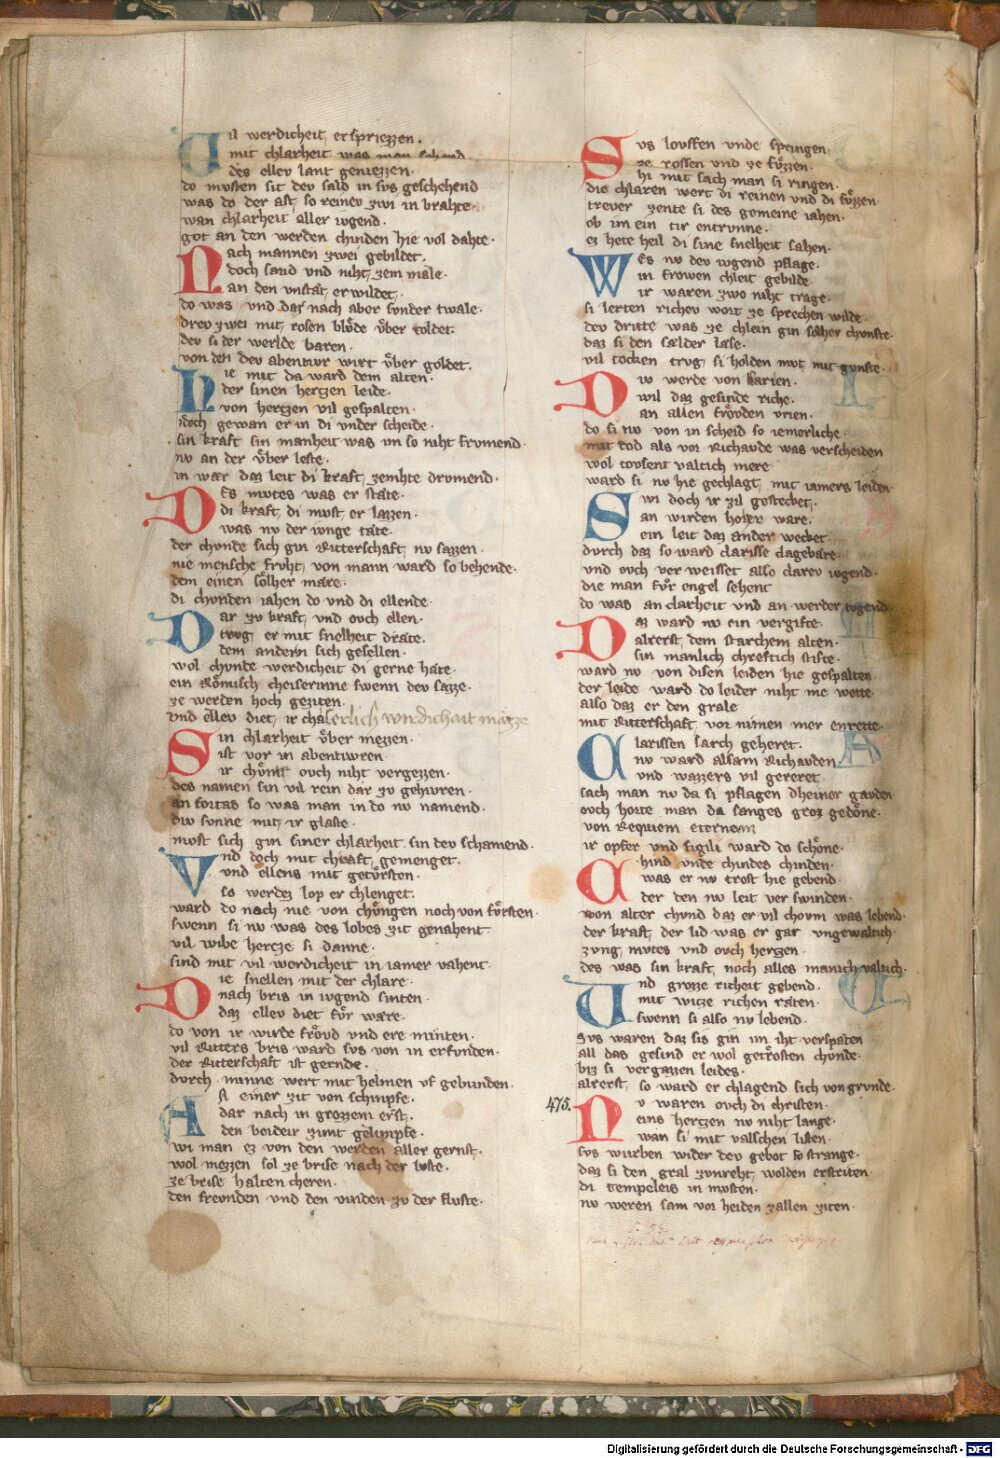 Vil werdicheit erspriezzen.
mit chlarheit was man sehend
des ellev lant geniezzen.
do mvsten sit dev sald in svs geschehend
was do der ast so reinev zwi in brahte.
wan chlarheit aller ivgend.
got an den werden chinden hie vol dahte.
Nach mannen zwei gebildet.
doch sand vnd niht zem male.
an den vnstat erwildet.
do was vnd dar nach aber svnder twale.
drev zwei mit rosen blvͦde vͤber toldet.
dev si der werlde baren.
von den dev abentivr wirt vͤber goldet.
Hie mit da ward dem alten.
der sinen hertzen leide.
von hertzen vil gespalten.
idoch gewan er in di vnder scheide.
sin kraft sin manheit was im so niht frvmend.
nv an der vͤber leste.
in war daz leit di kraft zemhte drvmend.
Des mvtes was er state.
di kraft di mvst er lazzen.
was nv der ivnge tate.
der chvnde sich gin Ritterschaft nv sazzen.
nie mensche frvht von mann ward so behende.
dem einen soͤlher mare.
di chvnden iahen do vnd di ellende.
Dar zv kraft vnd ovch ellen.
trvg er mit snelheit drate.
dem andern sich gesellen.
wol chvnde werdicheit di gerne hate.
ein Roͤmisch cheiserinne swenn dev sazze.
ze werden hoch geziten.
vnd ellev diet ir chaiserlich wirdichait mazze
Sin chlarheit vͤber mezzen.
ist vor in abentivren.
ir choͤnne ovch niht vergezzen.
des namen sin vil rein dar zv gehivren.
an fortas so was man in do nv namend.
div svnne mit ir glaste.
mvst sich gin siner chlarheit sin dev schamend.
Vnd doch mit chraft gemenget.
vnd ellens mit getvͤrsten.
so werdez lop er chlenget.
ward do nach nie von chvͤngen noch von fvͤrsten.
swenn si nv was des lobes zit genahent
vil wibe hertze si danne.
sind mit vil werdicheit in iamer vahent.
Die snellen mit der chlare.
nach bris in ivgend sinten.
daz ellev diet fvͤr ware.
do von ir wirde frovd vnd ere minten.
vil Ritters bris ward svs von in erfvnden.
der Ritterschaft ist gernde.
dvrch minne wert mit helmen vf gebvnden.
Ast einer zit von schimpfe.
dar nach in grozzem erst.
den beideir zvnt gelimpfe.
wi man ez von den werden aller gernst.
wol mezzen sol ze brise nach der lvste.
ze brise halten cheren.
den frevnden vnd den vinden zv der flvste.
Svs lovffen vnde springen.
ze rossen vnd ze fvͤzzen.
hi mit sach man si ringen.
die chlaren wert di reinen vnd di svͤzzen.
trever zente si des gemeine iahen.
ob im ein tir entrvnne.
ez hete heil di sine snelheit sahen.
Wes nv dev ivgend pflage.
in frowen chleit gebilde.
ir waren zwo niht trage.
si lerten richev wort ze sprechen wilde.
dev dritte was ze chlein gin soͤlher chvnste.
daz si den salder lase.
vil tocken trvg si holden mvt mit gvnste.
Div werde von karien.
wil daz gesinde riche.
an allen frovden vrien.
do si nv von in scheid so iemerliche.
mit tod als vor Richavde was verscheiden
wol tovsent valtich mere
ward si nv hie gechlagt mit iamers leiden.
Swi doch ir zil gestecket.
an wirden hoher ware.
ein leit daz ander wecket.
dvrch daz so ward clarisse clagebare.
vnd ovch ver weisset also clarev ivgend.
die man fvͤr engel sehent
do was an clarheit vnd an werder tvgend
Daz ward nv ein vergifte.
alrerst dem starchem alten.
sin manlich chreftich stifte.
ward nv von disen leiden hie gespalten
der leide ward do leider niht me wette.
also daz er den grale
mit Ritterschaft vor nimen mer enrette.
Clarissen sarch geheret.
nv ward alsam Richavden
vnd wazzers vil gereret.
sach man nv da si pflagen dheiner gavden
ovch horte man da sanges groz gedoͤne.
von Requiem eternam
ir opfer vnd sigili ward do schoͤne.
Chind vnde chindes chinden.
was er nv trost hie gebend.
der den nv leit ver swinden.
won alter chvnd daz er vil chovm was lebend.
der kraft der lid was er gar vngewaltich.
zvng mvtes vnd ovch hertzen.
des was sin kraft noch alles manich valtich.
Vnd grozze richeit gebend.
mit witze richen raten.
swenn si also nv lebend.
Svs waren daz sis gin im iht verspaten
all das gesind er wol getroͤsten chvnde.
biz si vergazzen leides.
alrerst so ward er chlagend sich von grvnde.
475.
Nv waren ovch di christen.
eins hertzen nv niht lange.
wan si mit valschen listen.
svs wurben wider dev gebot so strange.
daz si den gral zvnreht wolden erstriten.
di tempeleis in mvsten.
nv weren sam vor heiden zallen ziten.
Digitalisierung gefördert durch die Deutsche Forschungsgemeinschaft - DFG